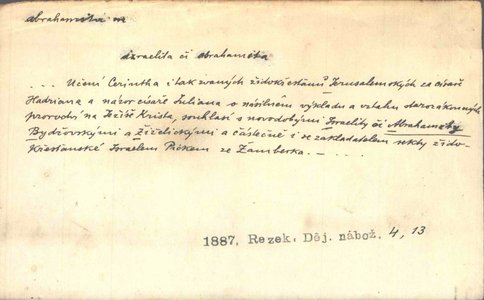 abrahamita m
izraelita či abrahamita
... Učení Cerintha i tak zvaných židokřesťanů Jerusalemských za císaře
Hadriana a názor císaře Juliana o násilném výkladu a vztahu starozákonných
proroctví na Ježíše Krista, souhlasí s novodobými Israelity či Abrahamity
Bydžovskými a Žiželickými a částečně i se zakladatelem sekty žido-
křesťanské Israelem Pickem ze Žamberka. – ...
1887, Rezek. Děj. nábož. 4, 13